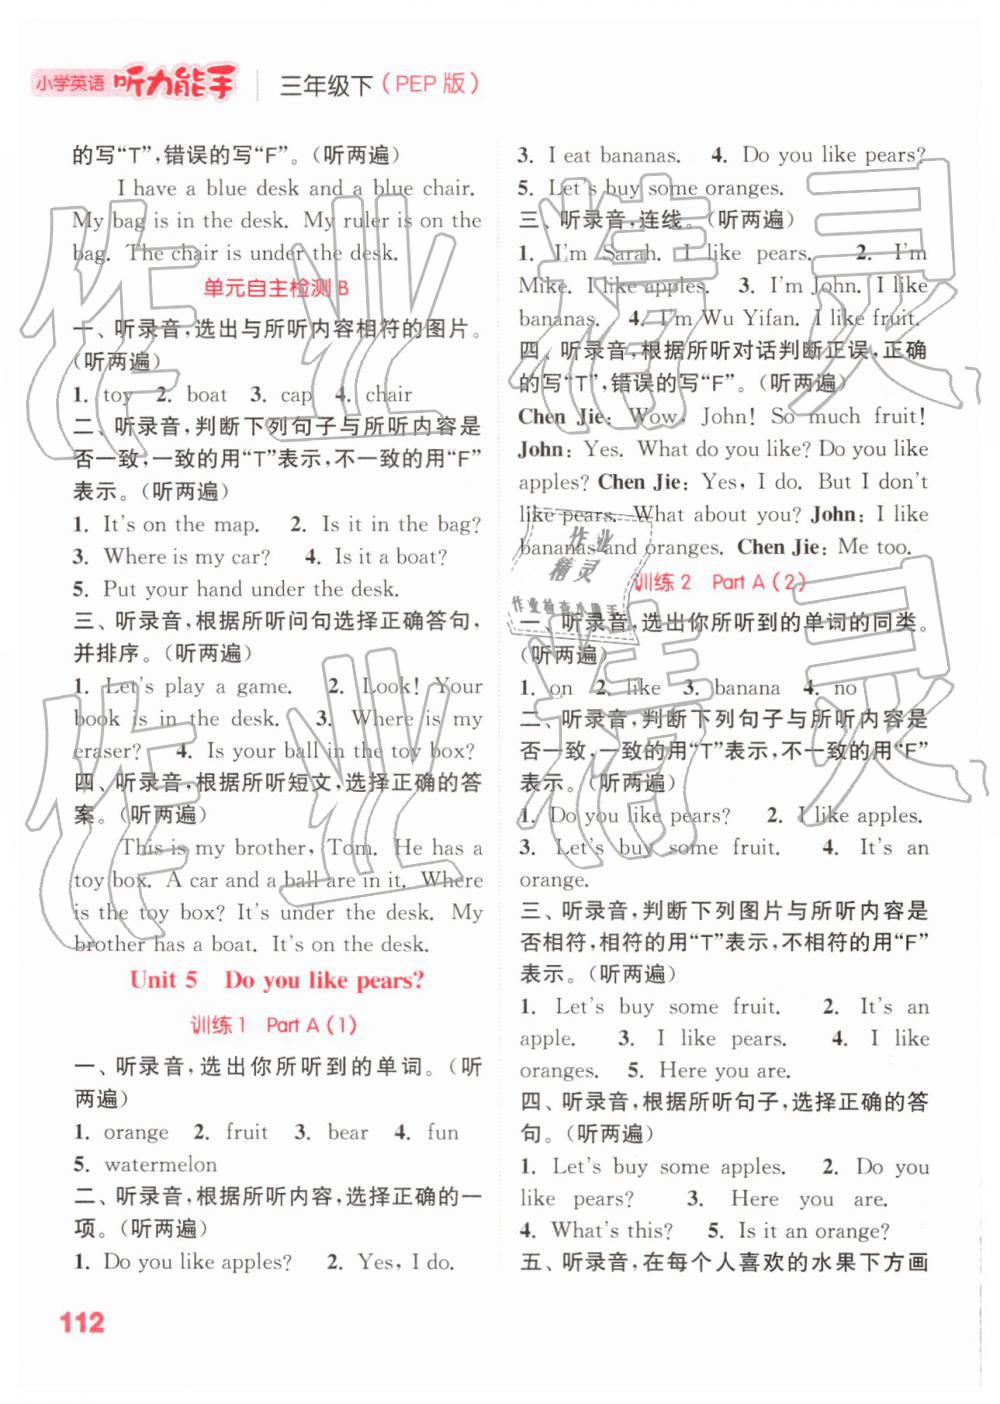 小学英语 听力能手 三年级下（PEP 版）
的写“T”，错误的写“F”。（听两遍）
I have a blue desk and a blue chair.
My bag is in the desk. My ruler is on the
bag. The chair is under the desk.
单元自主检测 B
一、听录音，选出与所听内容相符的图片。
（听两遍）
1. toy 2. boat 3. cap 4. chair
二、听录音，判断下列句子与所听内容是
否一致，一致的用“T”表示，不一致的用“F”
表示。（听两遍）
1. It's on the map. 2. Is it in the bag?
3. Where is my car? 4. Is it a boat?
5. Put your hand under the desk.
三、听录音，根据所听问句选择正确答句，
并排序。（听两遍）
1. Let's play a game. 2. Look! Your
book is in the desk. 3. Where is my
eraser? 4. Is your ball in the toy box?
四、听录音，根据所听短文，选择正确的答
案。（听两遍）
This is my brother, Tom. He has a
toy box. A car and a ball are in it. Where
is the toy box? It's under the desk. My
brother has a boat. It's on the desk.
Unit 5 Do you like pears?
训练 1 Part A (1)
一、听录音，选出你所听到的单词。（听
两遍）
1. orange 2. fruit 3. bear 4. fun
5. watermelon
二、听录音，根据所听内容，选择正确的一
项。（听两遍）
1. Do you like apples? 2. Yes, I do.
3. I eat bananas. 4. Do you like pears?
5. Let's buy some oranges.
三、听录音，连线。（听两遍）
1. I'm Sarah. I like pears. 2. I'm
Mike. I like apples. 3. I'm John. I like
bananas. 4. I'm Wu Yifan. I like fruit.
四、听录音，根据所听对话判断正误，正确
的写“T”，错误的写“F”。（听两遍）
Chen Jie: Wow, John! So much fruit!
John: Yes. What do you like? Do you like
apples? Chen Jie: Yes, I do. But I don't
like pears. What about you? John: I like
bananas and oranges. Chen Jie: Me too.
训练 2 Part A (2)
一、听录音，选出你所听到的单词的同类。
（听两遍）
1. on 2. like 3. banana 4. no
二、听录音，判断下列句子与所听内容是
否一致，一致的用“T”表示，不一致的用“F”
表示。（听两遍）
1. Do you like pears? 2. I like apples.
3. Let's buy some fruit. 4. It's an
orange.
三、听录音，判断下列图片与所听内容是
否相符，相符的用“T”表示，不相符的用“F”
表示。（听两遍）
1. Let's buy some fruit. 2. It's an
apple. 3. I like pears. 4. I like
oranges. 5. Here you are.
四、听录音，根据所听句子，选择正确的答
句。（听两遍）
1. Let's buy some apples. 2. Do you
like pears? 3. Here you are.
4. What's this? 5. Is it an orange?
五、听录音，在每个人喜欢的水果下方画
112
作业精灵
作业精灵
作业
精灵
作业检查小助手